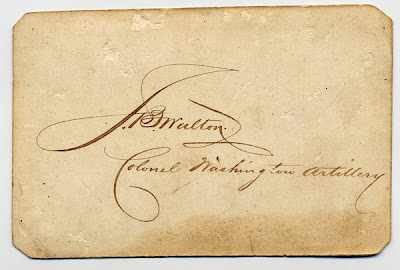 J.B. Walton.
Colonel Washington Artillery